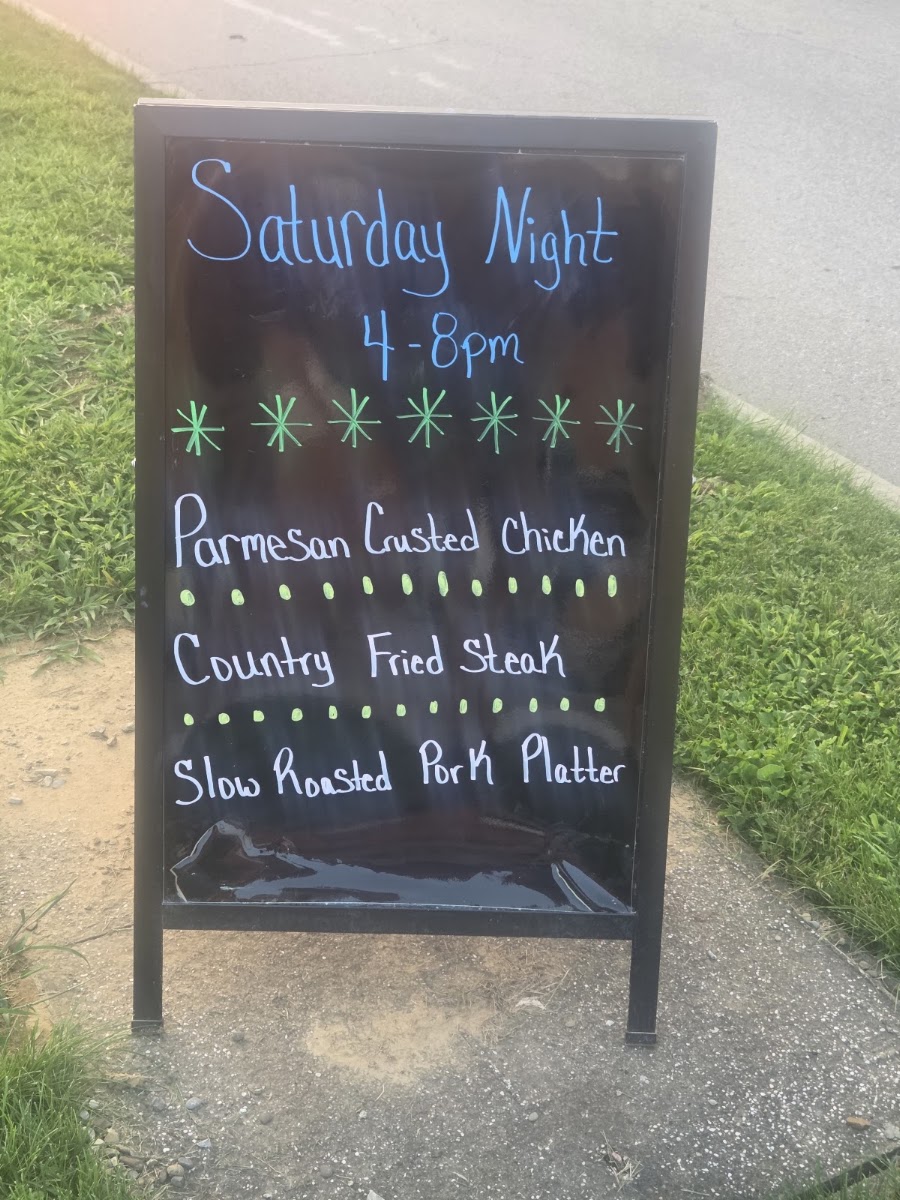 Saturday Night
4-8pm
Parmesan Crusted Chicken
Country Fried Steak
Slow Roasted Pork Platter